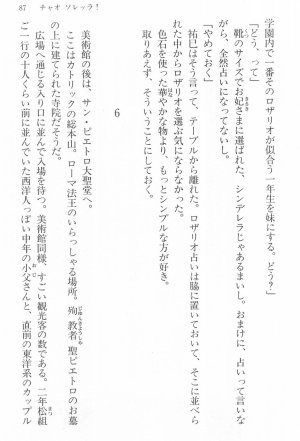 87　チャオ ソレッラ！
学園内で一番そのロザリオが似合う一年生を妹にする。どう？」
「どう、って」
靴のサイズでお妃さまに選ばれた、シンデレラじゃあるまいし。おまけに、占いって言いな
がら、全然占いになってないし。
「やめておく」
祐巳はそう言って、テーブルから離れた。ロザリオ占いは脇に置いておいて、そこに並べら
れた中からロザリオを選ぶ気にならなかった。
色石を使った華やかな物より、もっとシンプルな方が好き。
取りあえず、そういうことにしておく。
6
美術館の後は、サン・ピエトロ大聖堂へ。
ここはカトリックの総本山。ローマ法王のいらっしゃる場所。殉教者聖ピエトロのお墓
の上に建てられた寺院だそうだ。
広場へ通じる入り口に並んで入場を待つ。美術館同様、すごい観光客の数である。二年松組
ご一行の十人くらい前に並んでいた西洋人っぽい中年の小父さんと、直前の東洋系のカップル